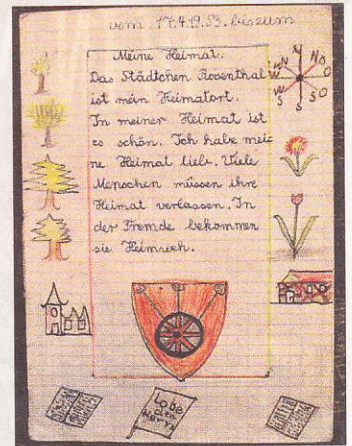 vom 17.4.1953. bis zum
Meine Heimat.
Das Städtchen Rosenthal
ist mein Heimatort.
In meiner Heimat ist
es schön. Ich habe mei=
ne Heimat lieb. Viele
Menschen müssen ihre
Heimat verlassen. In
der Fremde bekommen
sie Heimweh.
N
NO
O
SO
S
S
W
W
N
Lobe
den
Herrn